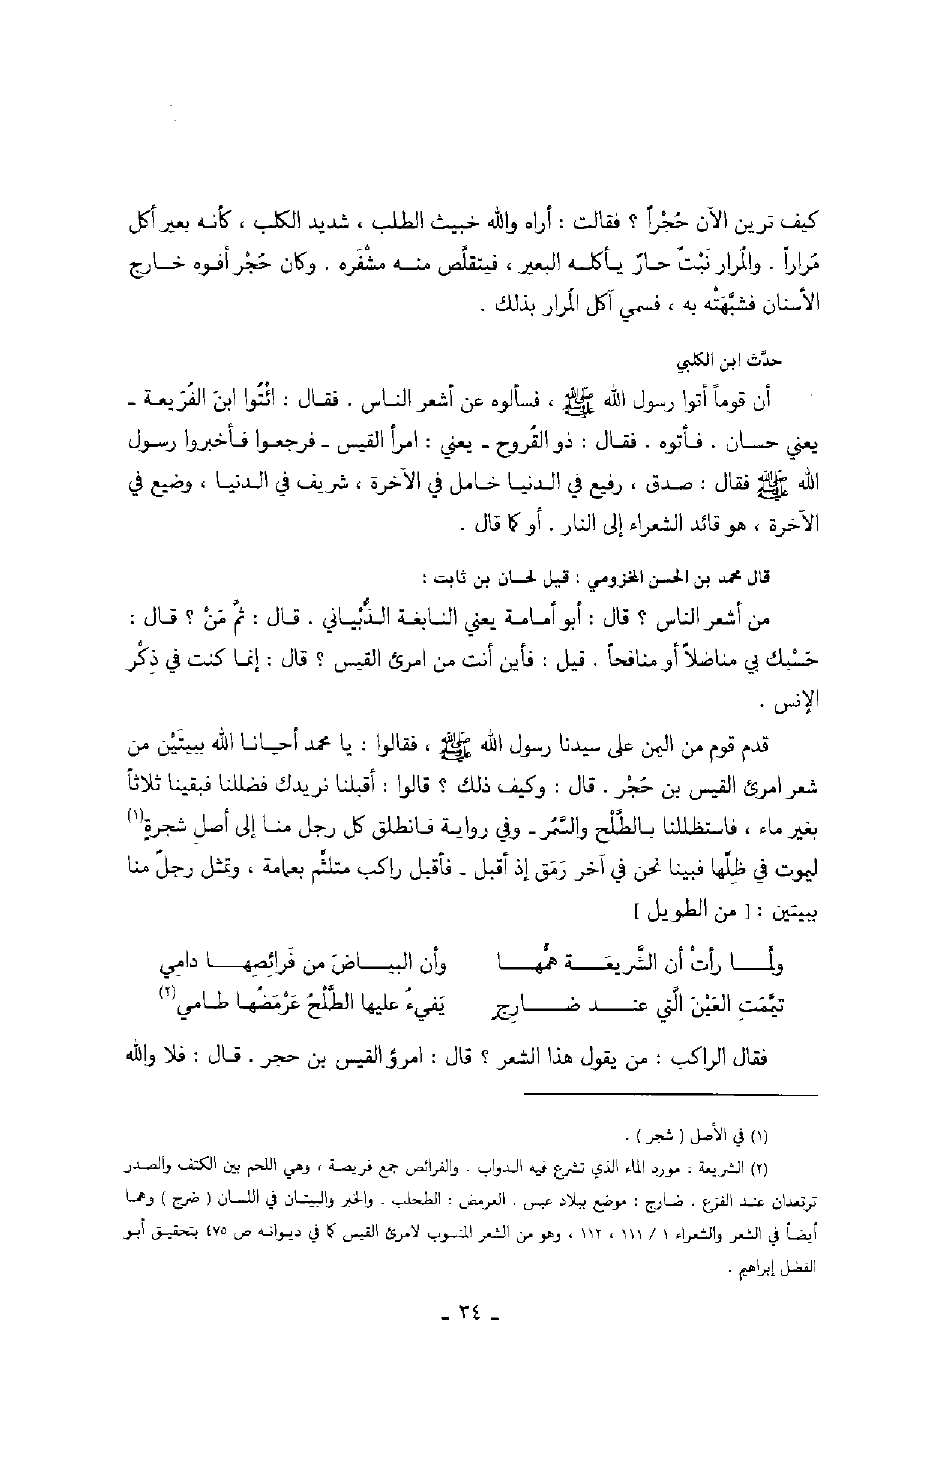 كيف ترين الآن حُجْراً ؟ فقالت : أراه والله خبيث الطلب ، شديد الكلب ، كأنه بعير أكل
مُراراً . والمُرار نَبْتٌ حارّ يأكله البعير ، فيتقلّص منه مشْفَره . وكان حُجْر أفوه خارج
الأسنان فشبَّهَتْه به ، فسمي آكل المُرار بذلك .
حدَّث ابن الكلبي
أن قوماً أتوا رسول الله ﷺ ، فسألوه عن أشعر الناس . فقال : ائْتُوا ابنَ الفُرَيعة ـ
يعني حسان . فأتوه . فقال : ذو القُروح ـ يعني : امرأ القيس ـ فرجعوا فأخبروا رسول
الله ﷺ فقال : صدق ، رفيع في الدنيا خامل في الآخرة ، شريف في الدنيا ، وضيع في
الآخرة ، هو قائد الشعراء إلى النار . أو كما قال .
قال محمد بن الحسن المخزومي : قيل لحسان بن ثابت :
من أشعر الناس ؟ قال : أبو أمامة يعني النابغة الذُّبْياني . قال : ثُم مَنْ ؟ قال :
حَسْبك بي مناضلاً أو منافحاً . قيل : فأين أنت من امرئ القيس ؟ قال : إنما كنت في ذِكْر
الإنس .
قدم قوم من اليمن على سيدنا رسول الله ﷺ ، فقالوا : يا محمد أحيانا الله ببيتَيْن من
شعر امرئ القيس بن حُجْر . قال : وكيف ذلك ؟ قالوا : أقبلنا نريدك فضللنا فبقينا ثلاثاً
بغير ماء ، فاستظللنا بالطَّلْح والسَّمُر ـ وفي رواية فانطلق كل رجل منا إلى أصل شجرةٍ(١)
ليموت في ظِلّها فبينا نحن في آخر رَمَق إذ أقبل ـ فأقبل راكب متلثّم بعمامة ، وتمثل رجلٌ منا
ببيتين : [ من الطويل ]
ولمّا رأتْ أن الشَّريعة همُّها وأن البياضَ من فَرائِصِها دامي
تيمَّمَتِ العَيْنَ الّتي عند ضارِجٍ يَفيءُ عليها الطَّلْحُ عَرْمَضُها طامي(٢)
فقال الراكب : من يقول هذا الشعر ؟ قال : امرؤ القيس بن حجر . قال : فلا والله
(١) في الأصل ( شجر ) .
(٢) الشريعة : مورد الماء الذي تشرع فيه الدواب . والفرائص جمع فريصة ، وهي اللحم بين الكتف والصدر
ترتعدان عند الفزع . ضارج : موضع ببلاد عبس . العرمض : الطحلب . والخبر والبيتان في اللسان ( ضرج ) وهما
أيضاً في الشعر والشعراء ١ / ١١١ ، ١١٢ ، وهو من الشعر المنسوب لامرئ القيس كما في ديوانه ص ٤٧٥ بتحقيق أبو
الفضل إبراهيم .
ـ ٣٤ ـ